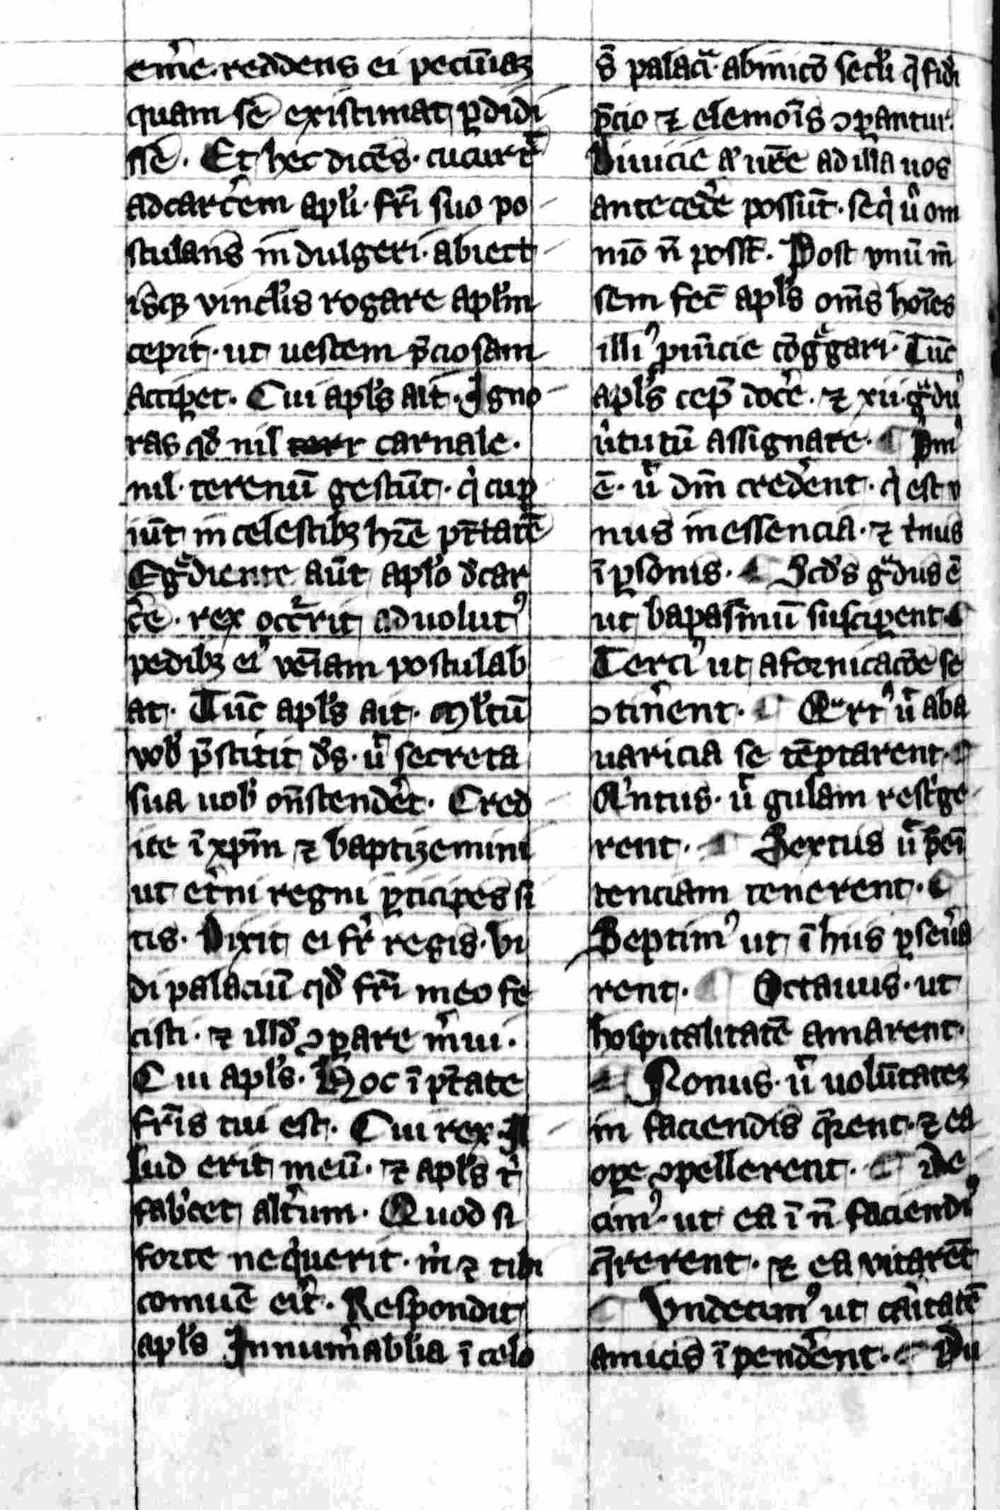 em̄e. reddens ei pecuniaꝫ
quam se existimat ꝑdidi
sse. Et hec dicēs. cucurrit
ad carcem apl̄i. fr̄i suo po
stulans indulgeri. abiect
isqꝫ vincl̄is rogare apl̄m
cepit. ut uestem p̄ciosam
accipet. Cui apl̄s ait. Igno
ras qd̄ nil carnale.
nil terenū gestūt. qi cup
iūt in celestibꝫ hr̄e ptātē
Egrediente aūt aplo d̄car
ce. rex occ̄rit aduolut᷒
pedibꝫ ei᷒ ven̄iam postulab
at. Tūc apl̄s ait. Ml̄tū
vob̄ p̄stitit d̄s. ut secreta
sua uob̄ ōnstendet. Cred
ite ī xp̄m ⁊ baptizemini
ut et̄ni regni ꝑticipes si
tis. Dixit ei fr̄ regis. Vi
di palaciū qd̄ fr̄i meo fe
cisti. ⁊ illd̄ ꝯꝑare m̄ui.
Cui apl̄s. Hoc ī ptāte
fr̄is tui est. Cui rex. Il
lud erit meū. ⁊ apl̄s t̄
fab̄cet alt̄um. Quod si
forte neq̄uerit. m̄ ⁊ tibi
comūe eit̄. Respondit
apl̄s Innum̄ablia ī celo
s̄ palacia ab inicō secl̄i q̄ fidi
p̄cio ⁊ elemoīs ꝯꝑantur.
Diuicie a᷒ ur̄e ad illa uos
antecede possūt. seq̄ ū om
nio n̄ possū̄t. Post vnū m̄
sem fec̄ apl̄s om̄s hoīes
illi᷒ puīncie cōggari. Tūc
apl̄s cep̄ doce. ⁊ xii gdu᷒
ūtutū assignare. Pm᷒
ē. ut dm̄ credent. q̄ est v
nus in essencia. ⁊ tnus
ī ꝑsonis. Scd̄s gdus ē
ut bapasmū suscipent
Terci᷒ ut a fornicacōe se
ꝯtinent. Qrt᷒ ut ab a
uaricia se tēptarent.
Qintus. ut gulam restige
rent. Sextus ut peni
tenciam tenerent.
Septim᷒ ut ī hiis ꝑseūa
rent. Octauus. ut
hospitalitatē amarent.
Nonus. ut volūtateꝫ
in faciendis qrent. ⁊ ea
oꝑe ꝯpellerent. De
cim᷒. ut ea ī n̄ faciendi᷒
qrerent. ⁊ ea vitarēt
Vndecim᷒ ut caritatē
amicis īpendent. Du